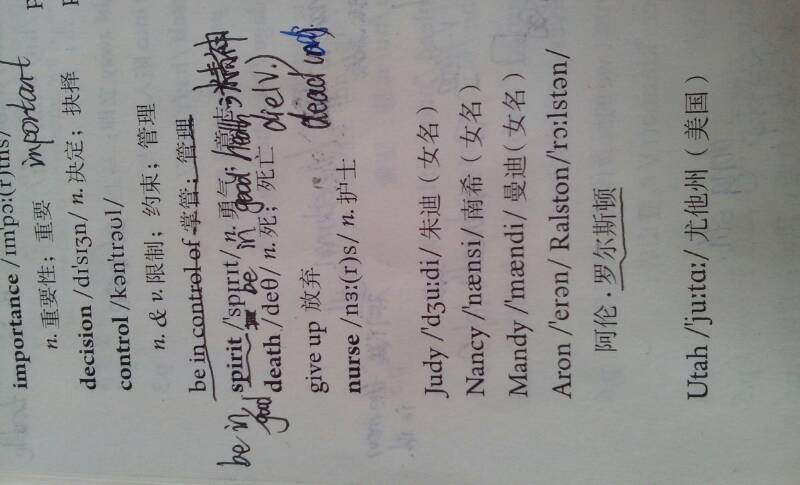 importance /ɪmˈpɔ:(r)tns/
n. 重要性；重要 important
decision /dɪˈsɪʒn/ n. 决定；抉择
control /kənˈtrəʊl/
n. & v. 限制；约束；管理
be in control of 掌管；管理
be in good health 精神
spirit /ˈspɪrɪt/ n. 勇气；意志
be in good be in good
death /deθ/ n. 死；死亡 die(v.)
give up 放弃 dead adj.
nurse /nɜ:(r)s/ n. 护士
Judy /ˈdʒu:di/ 朱迪（女名）
Nancy /ˈnænsi/ 南希（女名）
Mandy /ˈmændi/ 曼迪（女名）
Aron /ˈerən/ Ralston /ˈrɔ:lstən/
阿伦·罗尔斯顿
Utah /ˈju:tɑ:/ 尤他州（美国）